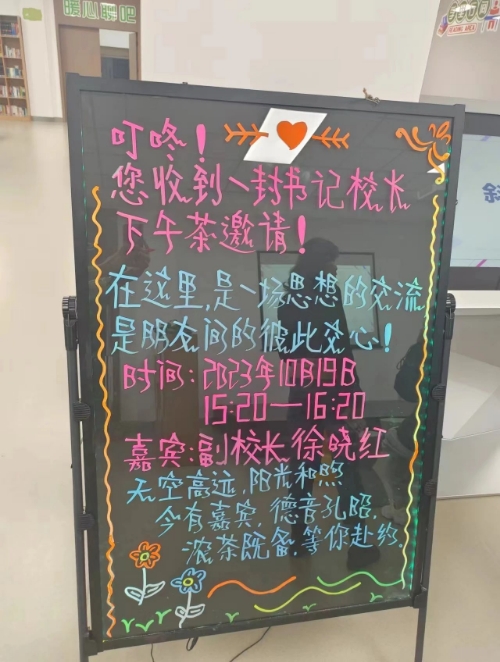 暖心聊吧
叮咚！
您收到一封书记校长
下午茶邀请！
在这里,是一场思想的交流
是朋友间的彼此交心！
时间:2023年10月19日
15:20—16:20
嘉宾:副校长徐晓红
天空高远,阳光和煦
今有嘉宾,德音孔昭,
浓茶既备,等你赴约